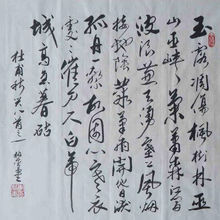 玉露凋傷楓樹林巫
山巫峽氣蕭森江間
波浪兼天湧塞上風雲
接地陰叢菊兩開他日淚
孤舟一繫故園心寒衣
處處催刀尺白帝
城高急暮砧
杜甫秋興八首之一